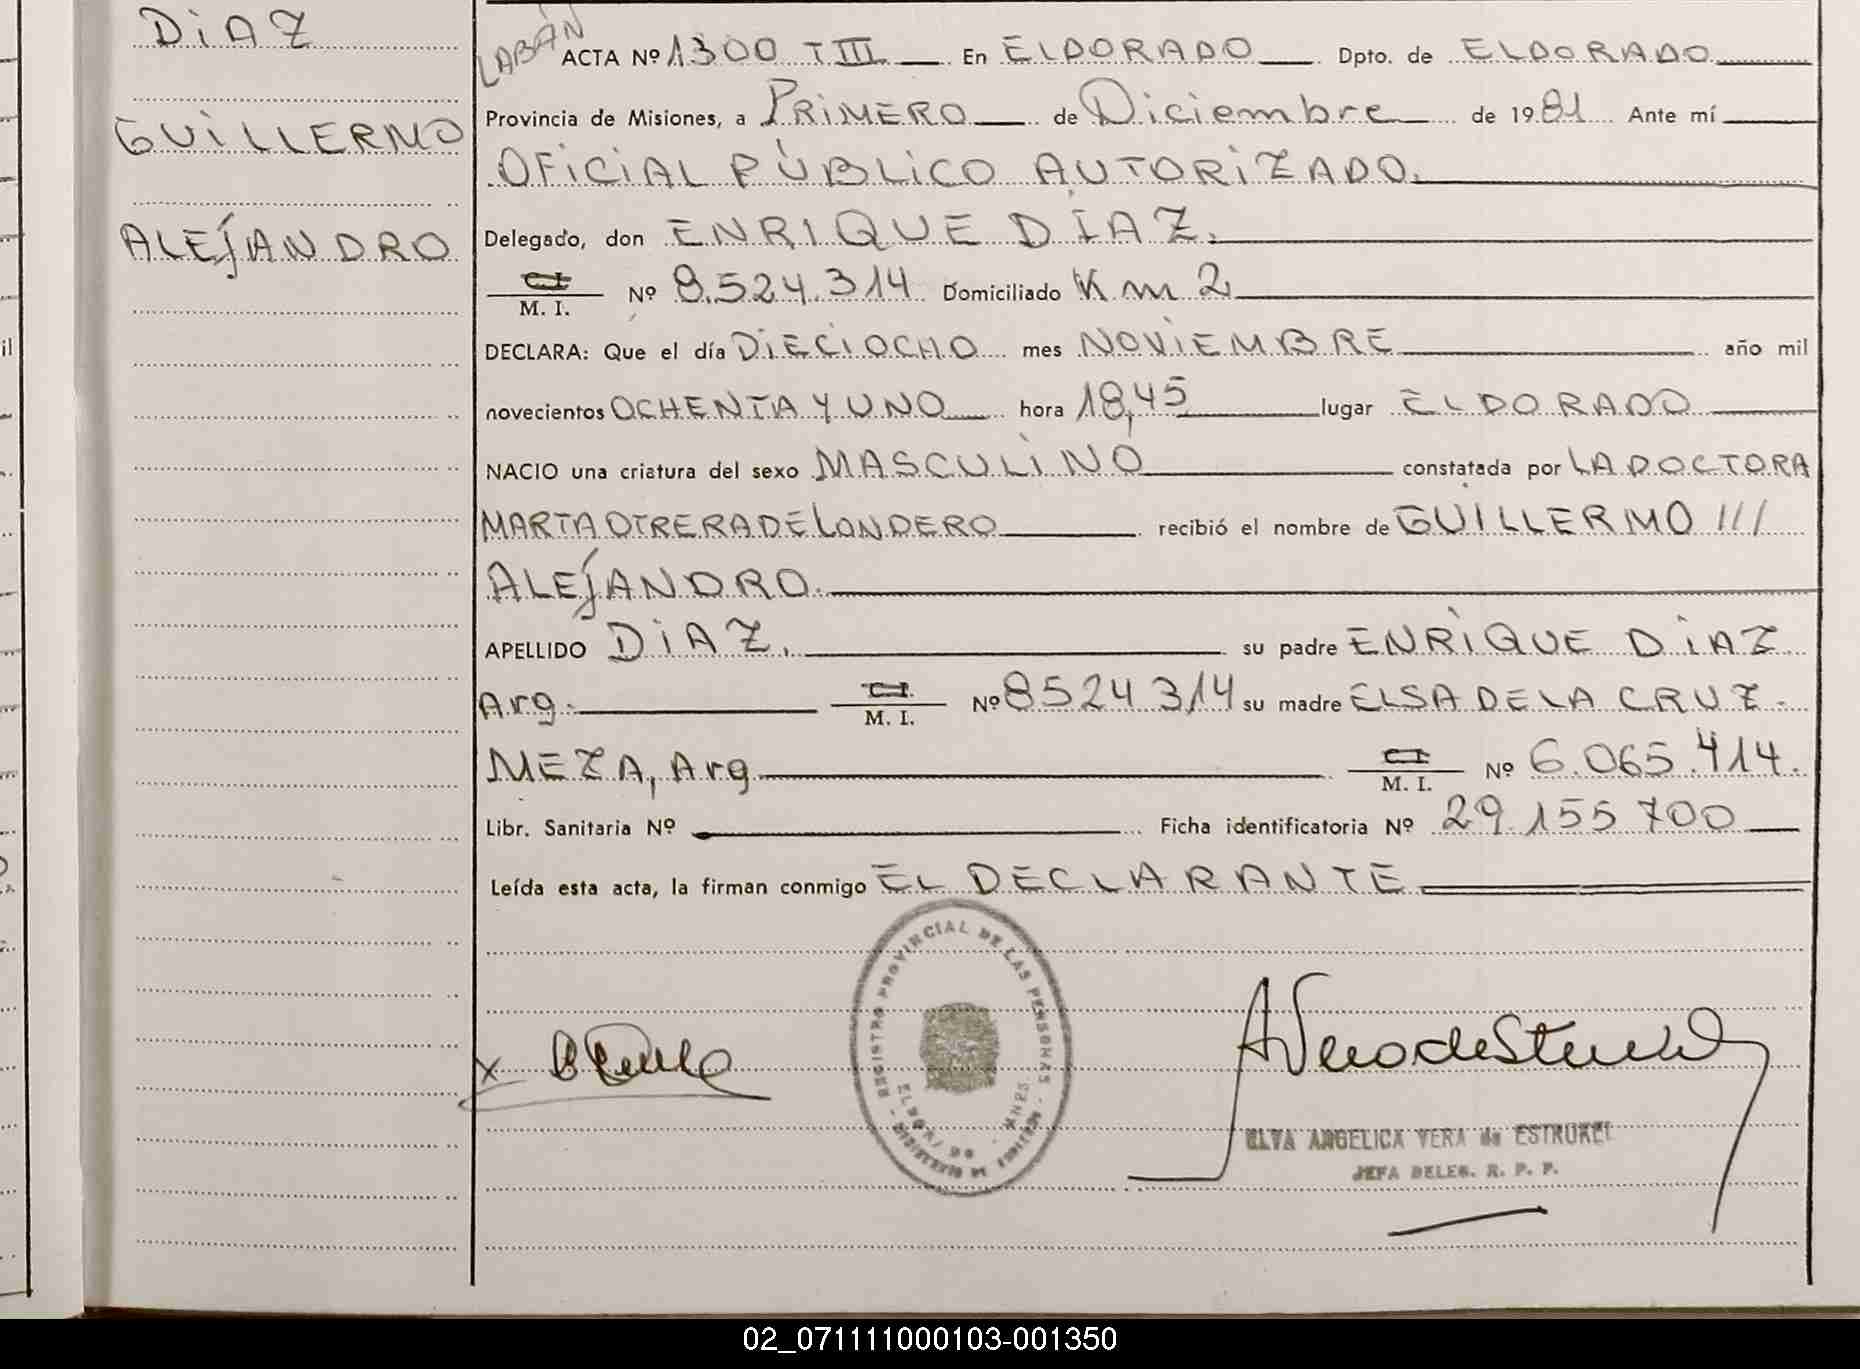 DiAZ
GUiLLERMO
ALEJANDRO
LABÁN
ACTA Nº 1300 T III En ELDORADO Dpto. de ELDORADO
Provincia de Misiones, a PRiMERO de Diciembre de 1981 Ante mí
OFiCiAL PÚBLiCO AUTORiZADO.
Delegado, don ENRIQUE DÍAZ.
C.I.
M. I. Nº 8.524.314 Domiciliado Km 2
DECLARA: Que el día DiECiOCHO mes NOViEMBRE año mil
novecientos OCHENTA Y UNO hora 18,45 lugar ELDORADO
NACIO una criatura del sexo MASCULiNO constatada por LA DOCTORA
MARTA OTRERA DE LONDERO recibió el nombre de GUiLLERMO ///
ALEJANDRO.
APELLIDO DiAZ. su padre ENRiQUE DiAZ
Arg. C.I. M. I. Nº 8524314 su madre ELSA DE LA CRUZ
MEZA, Arg C.I. M. I. Nº 6.065.414.
Libr. Sanitaria Nº Ficha identificatoria Nº 29.155.700
Leída esta acta, la firman conmigo EL DECLARANTE
REGISTRO PROVINCIAL DE LAS PERSONAS
x
ELVA ANGELICA VERA de ESTRUKEL
JEFA DELEG. R. P. P.
02_071111000103-001350